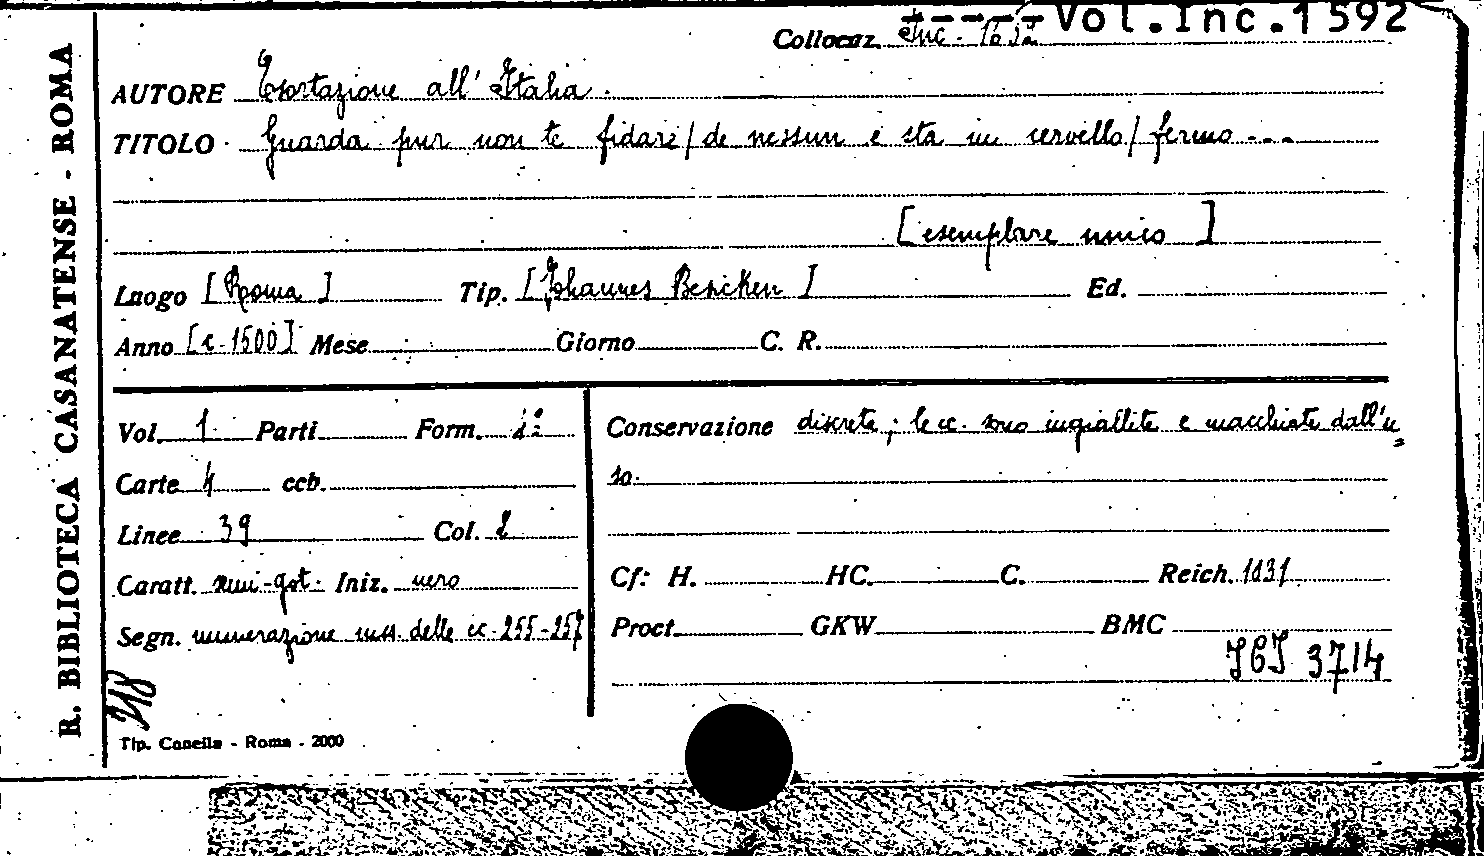 R. BIBLIOTECA CASANATENSE - ROMA
Collocaz. Inc. 1632 Vol.Inc.1592
AUTORE Esortazione all'Italia.
TITOLO Guarda pur non te fidare/de nessun e sta in cervello/fermo ...
[esemplare unico]
Luogo [Roma] Tip. [Johannes Besicken] Ed.
Anno [c. 1500] Mese Giorno C. R.
Vol. 1 Parti Form. 4º
Carte 4 ccb.
Linee 39 Col. 2
Caratt. semi-got. Iniz. nero
Segn. numerazione mss. delle cc. 255-257
218
Tip. Conella - Roma - 2000
Conservazione discreta; le cc. sono ingiallite e macchiate dall'u=
so.
Cf: H. HC. C. Reich. 1831
Proct. GKW BMC
IGI 3714